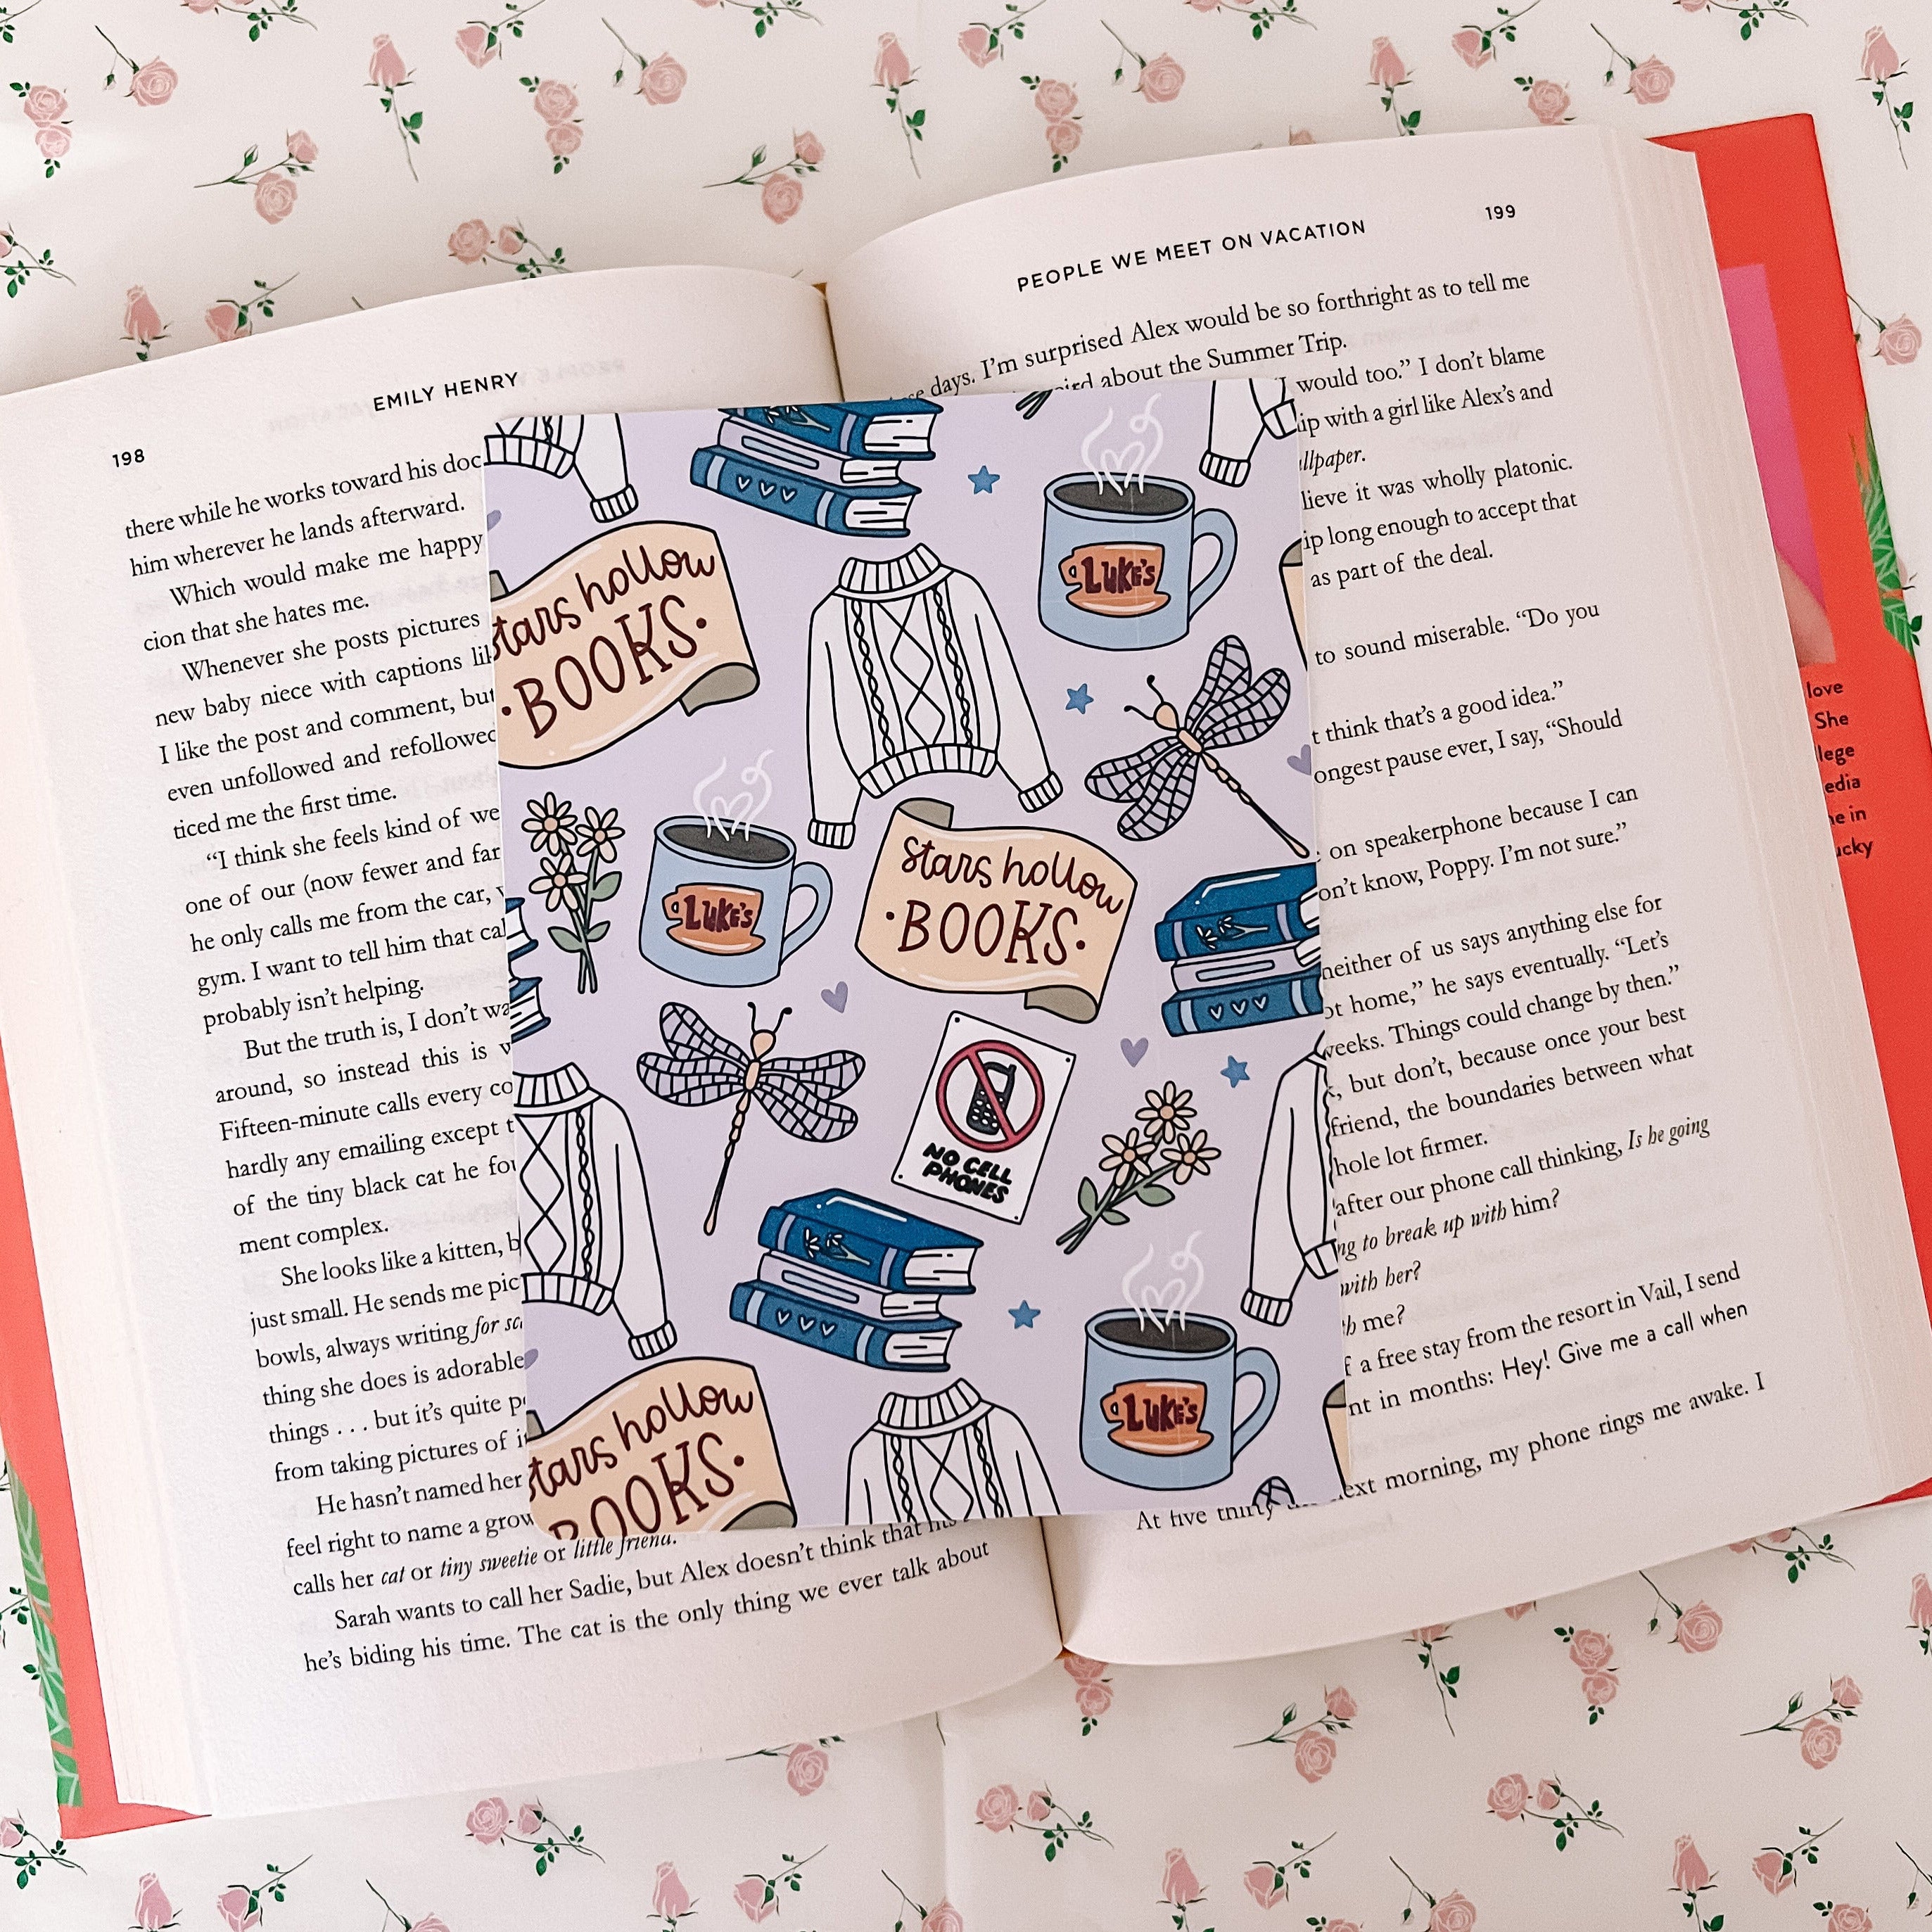 EMILY HENRY
198
there while he works toward his doc
him wherever he lands afterward.
Which would make me happy
cion that she hates me.
Whenever she posts pictures
new baby niece with captions
I like the post and comment, but
even unfollowed and refollowed
ticed me the first time.
“I think she feels kind of we
one of our (now fewer and far
he only calls me from the car,
gym. I want to tell him that cal
probably isn’t helping.
But the truth is, I don’t wa
around, so instead this is
Fifteen-minute calls every co
hardly any emailing except
of the tiny black cat he fou
ment complex.
She looks like a kitten,
just small. He sends me pic
bowls, always writing for
thing she does is adorable
things . . . but it’s quite
from taking pictures of
He hasn’t named her
feel right to name a grow
calls her cat or tiny sweetie or little friend.
Sarah wants to call her Sadie, but Alex doesn’t think that
he’s biding his time. The cat is the only thing we ever talk about
PEOPLE WE MEET ON VACATION
199
days. I’m surprised Alex would be so forthright as to tell me
about the Summer Trip.
I would too.” I don’t blame
ip with a girl like Alex’s and
llpaper.
lieve it was wholly platonic.
ip long enough to accept that
as part of the deal.
to sound miserable. “Do you
think that’s a good idea.”
ongest pause ever, I say, “Should
on speakerphone because I can
on’t know, Poppy. I’m not sure.”
neither of us says anything else for
ot home,” he says eventually. “Let’s
weeks. Things could change by then.”
but don’t, because once your best
friend, the boundaries between what
hole lot firmer.
after our phone call thinking, Is he going
ng to break up with him?
with her?
me?
a free stay from the resort in Vail, I send
nt in months: Hey! Give me a call when
At five thirty the next morning, my phone rings me awake. I
LUKE’S
stars hollow
•BOOKS•
LUKE’S
stars hollow
•BOOKS•
NO CELL
PHONES
LUKE’S
stars hollow
BOOKS•
love
She
lege
edia
e in
ucky